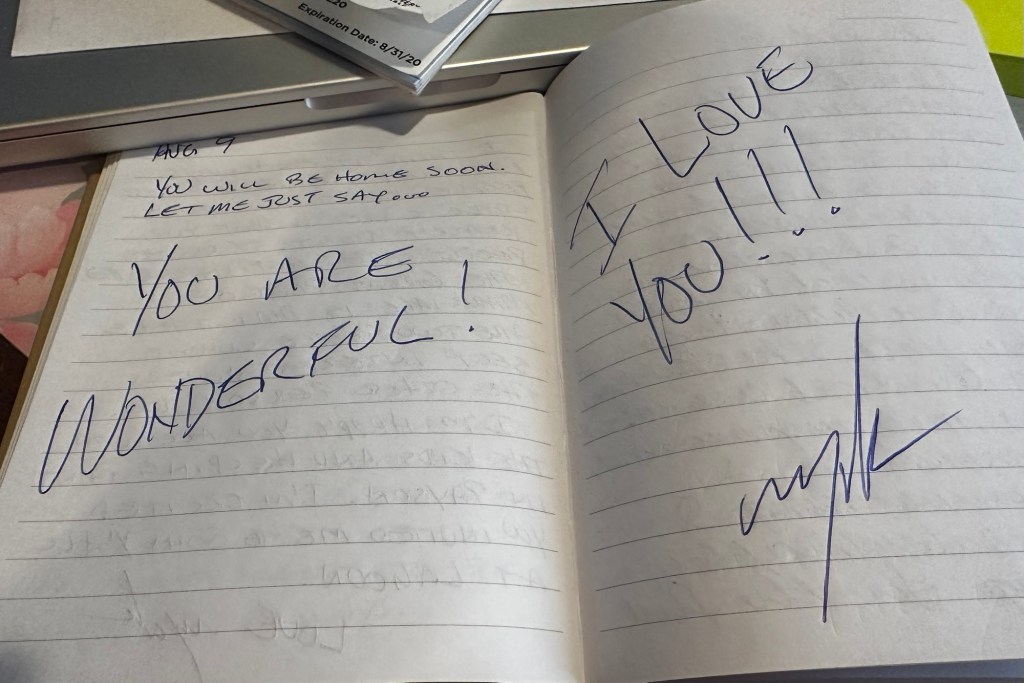 20
Expiration Date: 8/31/20
AUG 9
YOU WILL BE HOME SOON.
LET ME JUST SAY...
YOU ARE
WONDERFUL!
I LOVE
YOU!!!